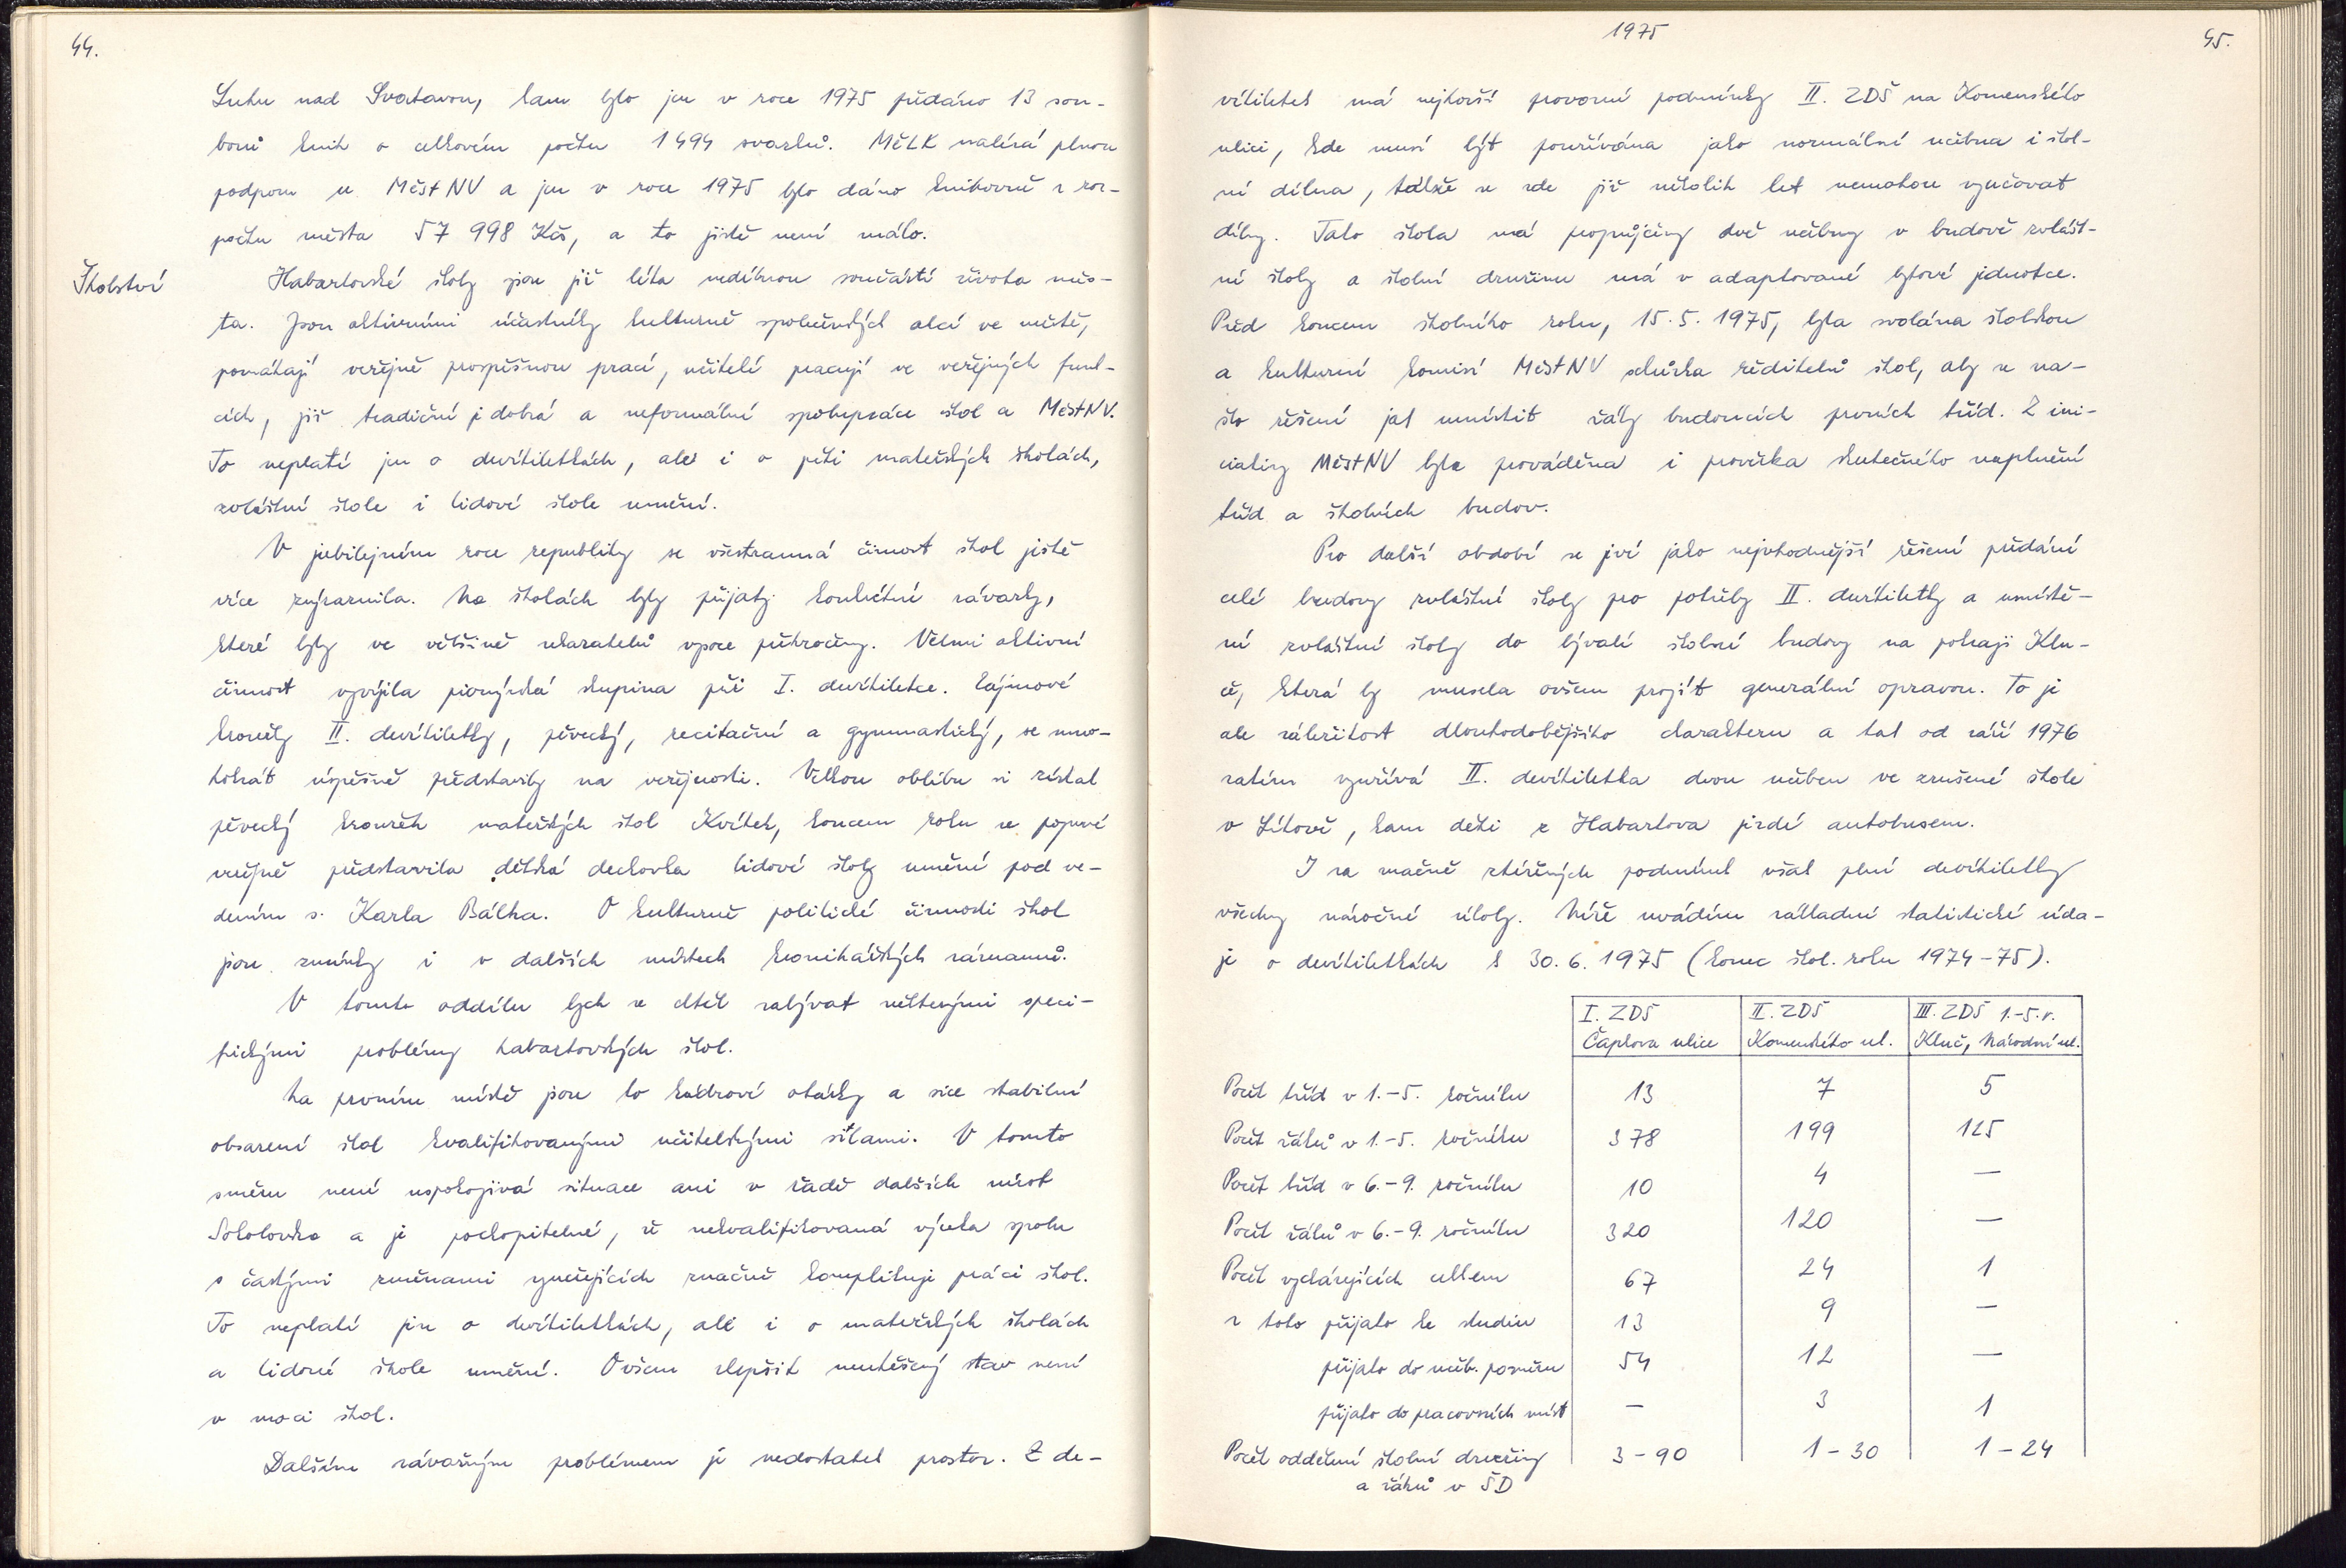 44.
Luhu nad Svatavou, kam bylo jen v roce 1975 předáno 13 sou-
borů knih o celkovém počtu 1494 svazků. MěLK nalézá plnou
podporu u MěstNV a jen v roce 1975 bylo dáno knihovně z roz-
počtu města 57 998 Kčs, a to jistě není málo.
Školství
Habartovské školy jsou již léta nedílnou součástí života měs-
ta. Jsou aktivními účastníky kulturně společenských akcí ve městě,
pomáhají veřejně prospěšnou prací, učitelé pracují ve veřejných funk-
cích, již tradiční je dobrá a neformální spolupráce škol a MěstNV.
To neplatí jen o devítiletkách, ale i o pěti mateřských školách,
zvláštní škole i lidové škole umění.
V jubilejním roce republiky se všestranná činnost škol jistě
více zvýraznila. Na školách byly přijaty konkrétní závazky,
které byly ve většině ukazatelů vysoce překročeny. Velmi aktivní
činnost vyvíjela pionýrská skupina při I. devítiletce. Zájmové
kroužky II. devítiletky, pěvecký, recitační a gymnastický, se mno-
hokrát úspěšně představily na veřejnosti. Velkou oblibu si získal
pěvecký kroužek mateřských škol Kvítek, koncem roku se poprvé
veřejně představila dětská dechovka lidové školy umění pod ve-
dením s. Karla Bálka. O kulturně politické činnosti škol
jsou zmínky i v dalších místech kronikářských záznamů.
V tomto oddílu bych se chtěl zabývat některými speci-
fickými problémy habartovských škol.
Na prvním místě jsou to kádrové otázky a sice stabilní
obsazení škol kvalifikovanými učitelskými silami. V tomto
směru není uspokojivá situace ani v řadě dalších míst
Sokolovska a je pochopitelné, že nekvalifikovaná výuka spolu
s častými změnami vyučujících značně komplikuje práci škol.
To neplatí jen o devítiletkách, ale i o mateřských školách
a lidové škole umění. Ovšem zlepšit neutěšený stav není
v moci škol.
Dalším závažným problémem je nedostatek prostor. Z de-
1975
45.
vítiletek má nejhorší provozní podmínky II. ZDŠ na Komenského
ulici, kde musí být používána jako normální učebna i škol-
ní dílna, takže se zde již několik let nemohou vyučovat
dílny. Tato škola má propůjčeny dvě učebny v budově zvlášt-
ní školy a školní družinu má v adaptované bytové jednotce.
Před koncem školního roku, 15.5.1975, byla svolána školskou
a kulturní komisí MěstNV schůzka ředitelů škol, aby se na-
šlo řešení jak umístit žáky budoucích prvních tříd. Z ini-
ciativy MěstNV byla prováděna i prověrka skutečného naplnění
tříd a školních budov.
Pro další období se jeví jako nejvhodnější řešení předání
celé budovy zvláštní školy pro potřeby II. devítiletky a umístě-
ní zvláštní školy do bývalé školní budovy na pokraji Klu-
če, která by musela ovšem projít generální opravou. To je
ale záležitost dlouhodobějšího charakteru a tak od září 1976
zatím využívá II. devítiletka dvou učeben ve zrušené škole
v Lítově, kam děti z Habartova jezdí autobusem.
I za značně ztížených podmínek však plní devítiletky
všechny náročné úkoly. Níže uvádím základní statistické úda-
je o devítiletkách k 30.6.1975 (konec škol. roku 1974-75).
I. ZDŠ II. ZDŠ III. ZDŠ 1.-5.r.
Čapkova ulice Komenského ul. Kluč, Národní ul.
Počet tříd v 1.-5. ročníku 13 7 5
Počet žáků v 1.-5. ročníku 378 199 125
Počet tříd v 6.-9. ročníku 10 4 —
Počet žáků v 6.-9. ročníku 320 120 —
Počet vycházejících celkem 67 24 1
z toho přijato ke studiu 13 9 —
přijato do učeb. poměru 54 12 —
přijato do pracovních míst — 3 1
Počet oddělení školní družiny 3-90 1-30 1-24
a žáků v ŠD